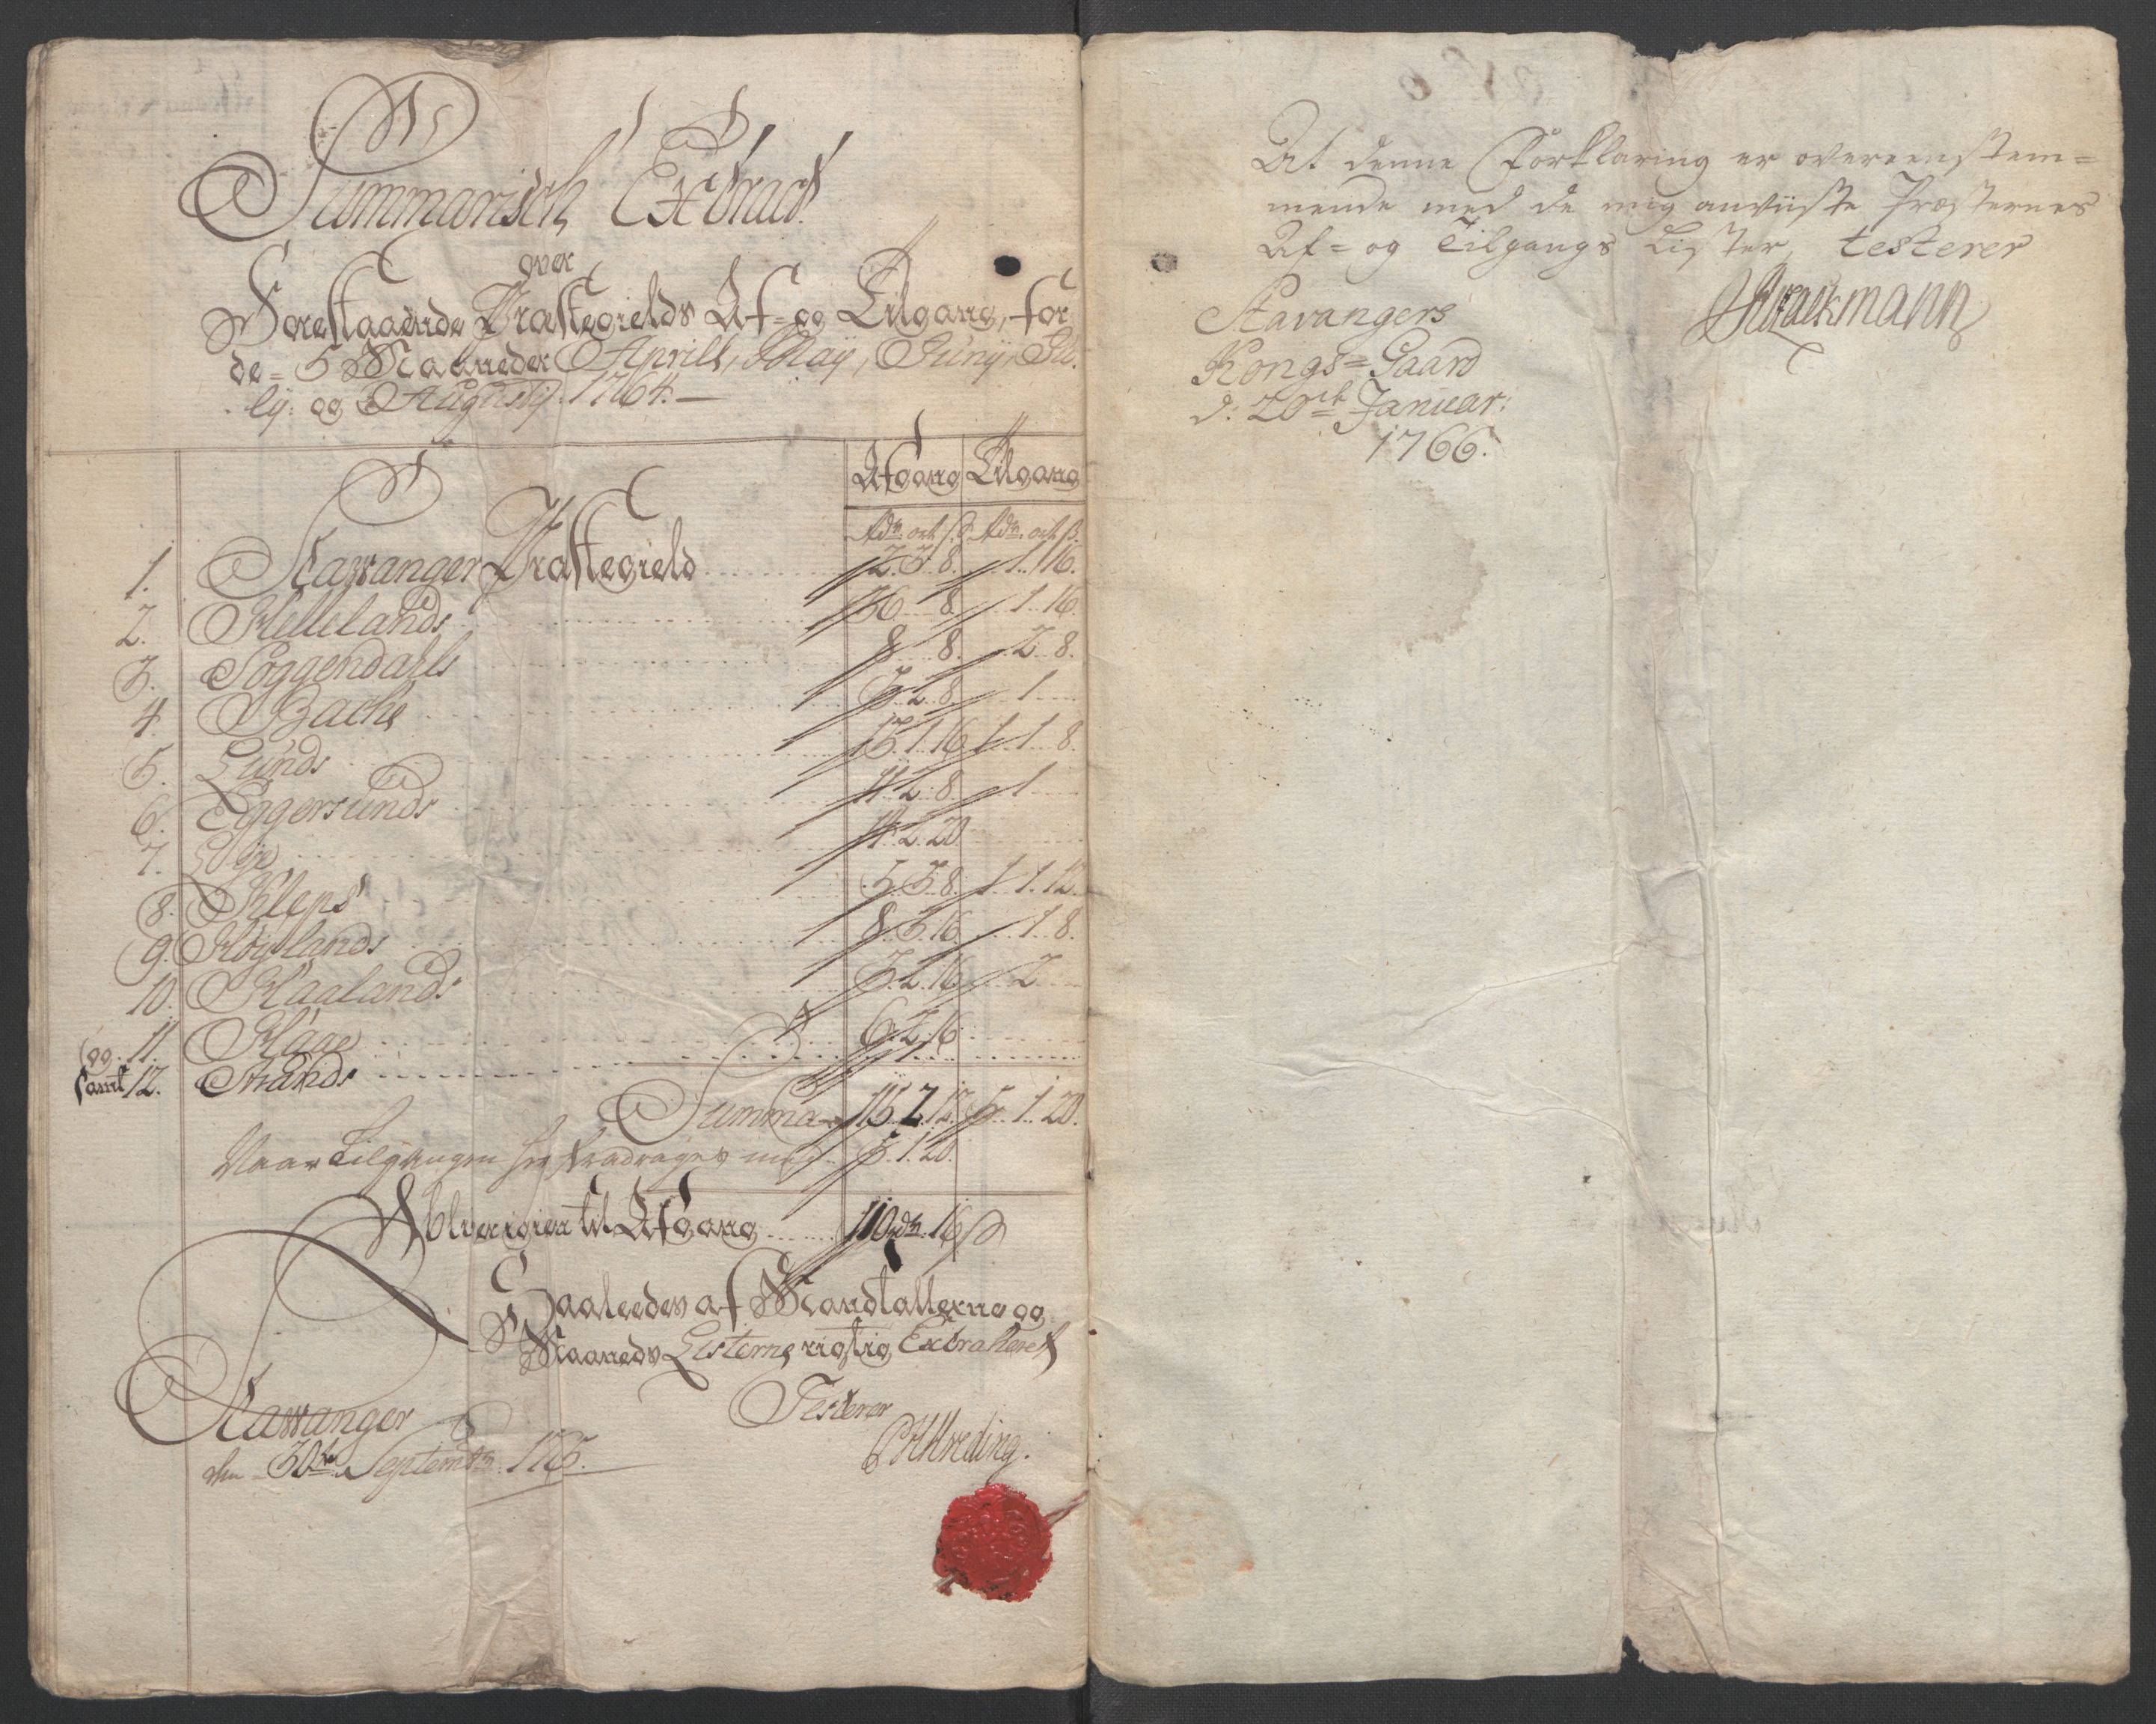 Summarisch Extract
over
Forestaaende Præstegields Af- og Tilgang, for
de 5 Maaneder Aprill, Maÿ, Junÿ, Ju-
lÿ og Augustÿ 1764.
Afgang Tilgang
Rdr. ort ß. Rdr. ort ß.
1. Stavanger Præstegield 12. 3. 8. 1. 16.
2. Hellelands 36. 8. 1. 16.
3. Soggendahls 8. 8. 2. 8.
4. Bache 3. 2. 8. 1
5. Lunds 13. 1. 16. 1. 1. 8.
6. Eggersunds 11. 2. 8. 1
7. Lÿe 4. 2. 20.
8. Kleps 5. 3. 8. 1. 1. 12.
9. Høÿlands 8. 3. 16. 1. 8.
10. Haalands 3. 2. 16. 2
og 11. Haae 6. 2. 16.
samt 12. Strands
Summa 115. 2. 12. 5. 1. 20.
Naar Tilgangen her fradrages med 5. 1. 20.
Blver igien til Afgang 110 rdr. 16 ß
Saaleedes af Mandtallerne og
Maaneds Listerne rigtig Extraheret
Testerer
Stavanger
den 30te Septembr: 1765.
At denne Forklaring er overeenstem=
mende med de mig anviiste Præsternes
Af= og Tilgangs Lister, testerer
Stavangers
Kongs=Gaard
d: 20de Januar:
1766.